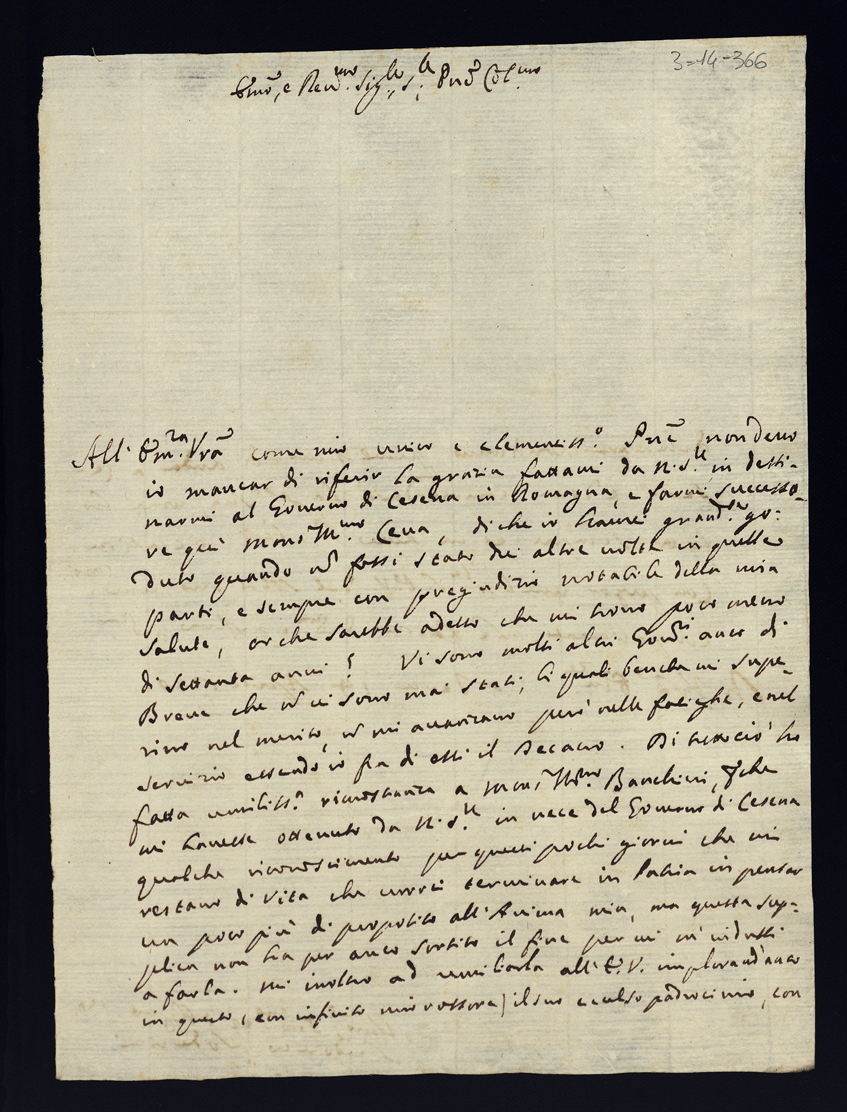 3-14-366
Em̃o, e Reũ.mo Sig.re, S.r Pñe Col.mo
All' Em.za Vrã come mio unico e clementiss.o Pñe non devo
io mancar di riferir la grazia fattami da N. S.re in desti-
narmi al Governo di Cesena in Romagna, e farmi successo-
re qui Mons.r Ill.mo Ceua, di che io haurei grand.e go-
duto quando nõ fossi stato due altre uolte in quelle
parti, e sempre con pregiudizio notabile della mia
salute, or che sarebbe adesso che mi trouo poco meno
di settanta anni? Vi sono molti altri Gou.ri anco di
Breue che nõ ui sono mai stati, li quali benche mi supe-
rino nel merito, nõ mi auanzano però nelle fatighe, e nel
seruizio essendo io fra di essi il Decano. Di tutto ciò ho
fatta umiliss.a rimostranza a Mons.r Ill.mo Banchini, p̃che
mi hauesse ottenuto da N. S.re in uece del Gouerno di Cesena
qualche riconoscimento per questi pochi giorni che mi
restano di vita che uorrei terminare in Patria in pensar
un poco più di proposito all'Anima mia, ma questa sup-
plica non ha per anco sortito il fine per cui m'indussi
a farla. Mi inoltro ad umiliarla all'E. V. implorand'anco
in questo (con infinito mio rossore) il suo eccelso padrocinio, con